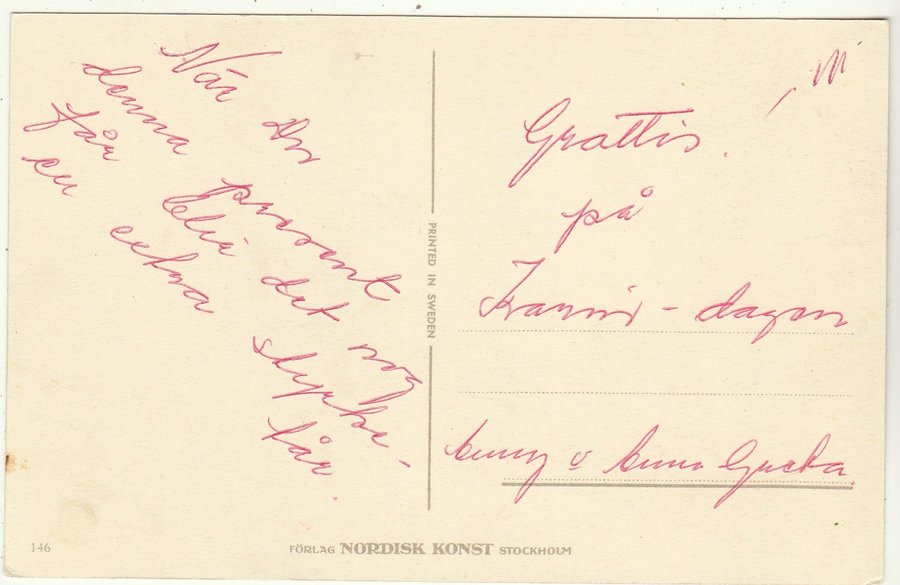 När du
denna present
får blir det nog
en extra styrke-
tår.
Grattis
på
-dagen
Anna Greta
PRINTED IN SWEDEN
146
FÖRLAG NORDISK KONST STOCKHOLM